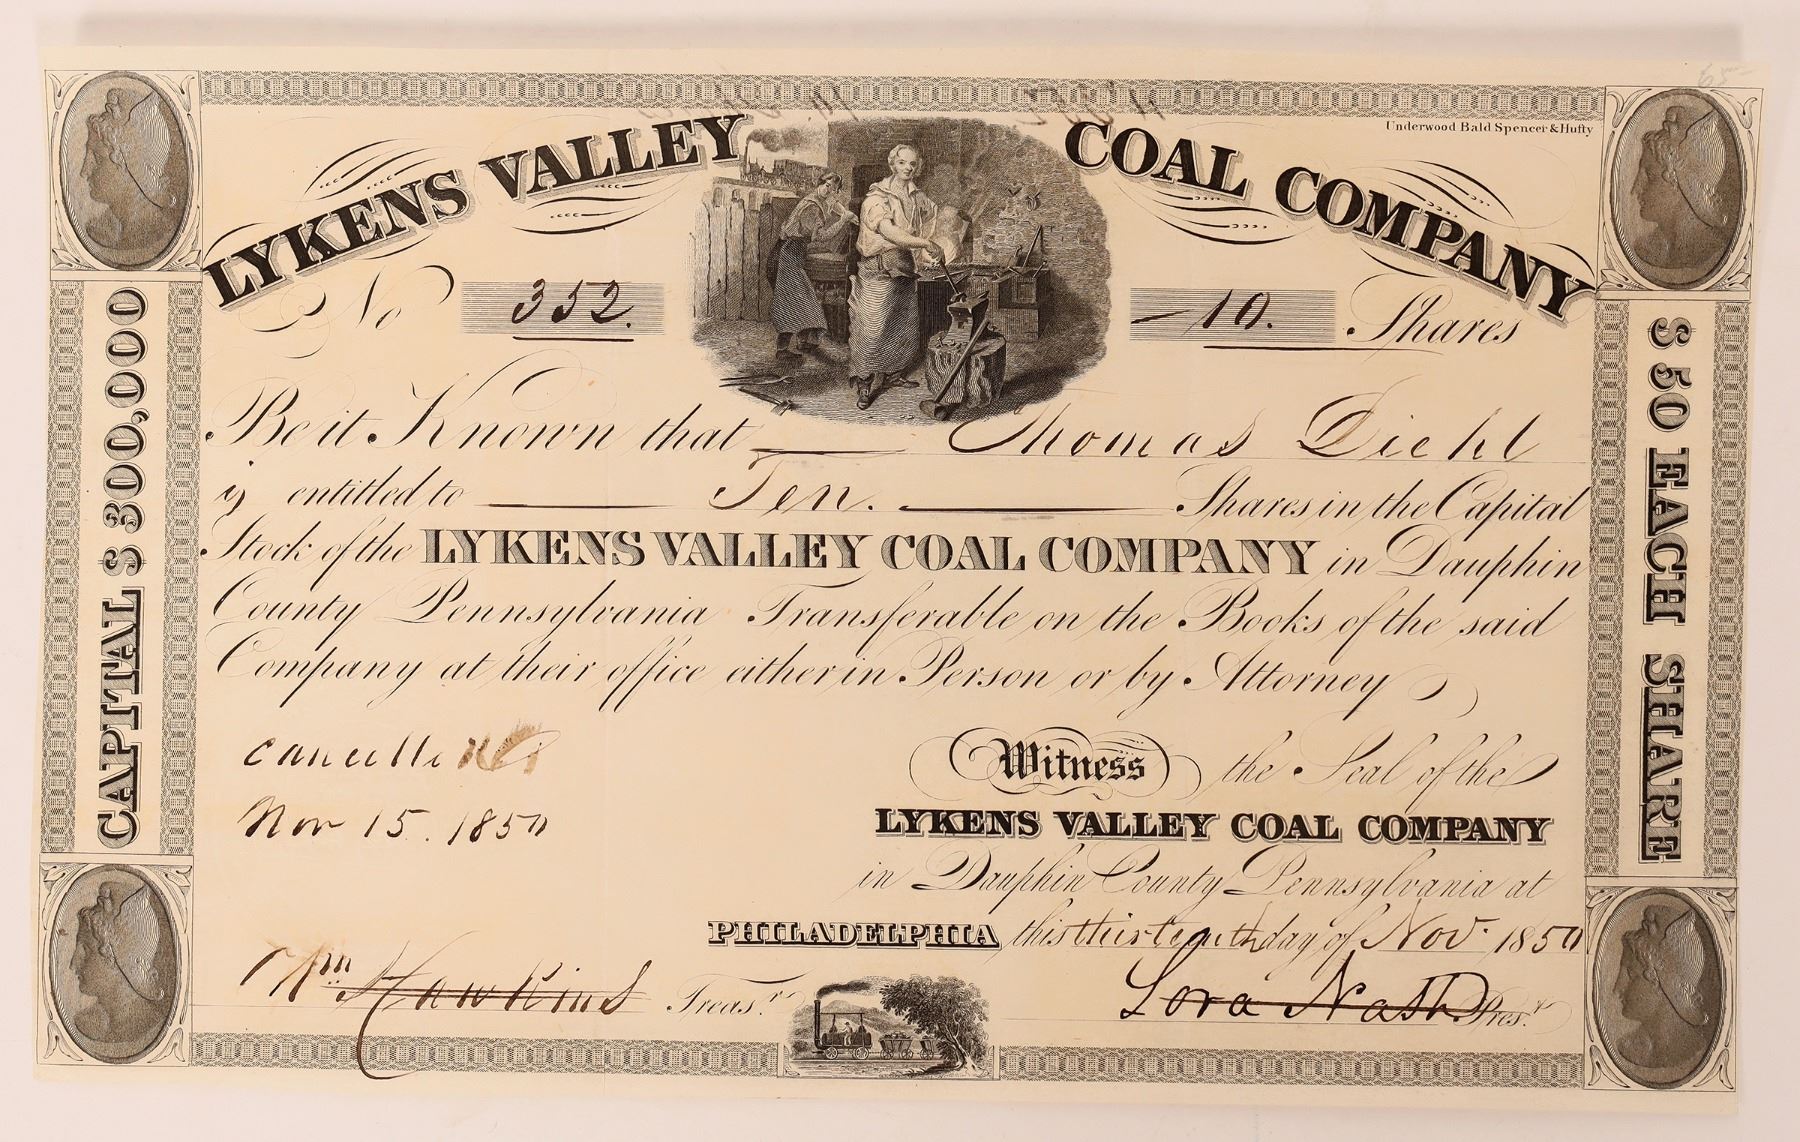 Underwood Bald Spencer & Hufty
LYKENS VALLEY COAL COMPANY
No 352. – 10. Shares
CAPITAL $ 300,000
$ 50 EACH SHARE
Be it Known that Thomas Diehl
is entitled to Ten. Shares in the Capital
Stock of the LYKENS VALLEY COAL COMPANY in Dauphin
County Pennsylvania Transferable on the Books of the said
Company at their office either in Person or by Attorney
cancelled
Nov 15. 1850
Witness the Seal of the
LYKENS VALLEY COAL COMPANY
in Dauphin County Pennsylvania at
PHILADELPHIA this thirteenth day of Nov. 1850
Wm Hawkins Treasr.
Lora Nash Prest.